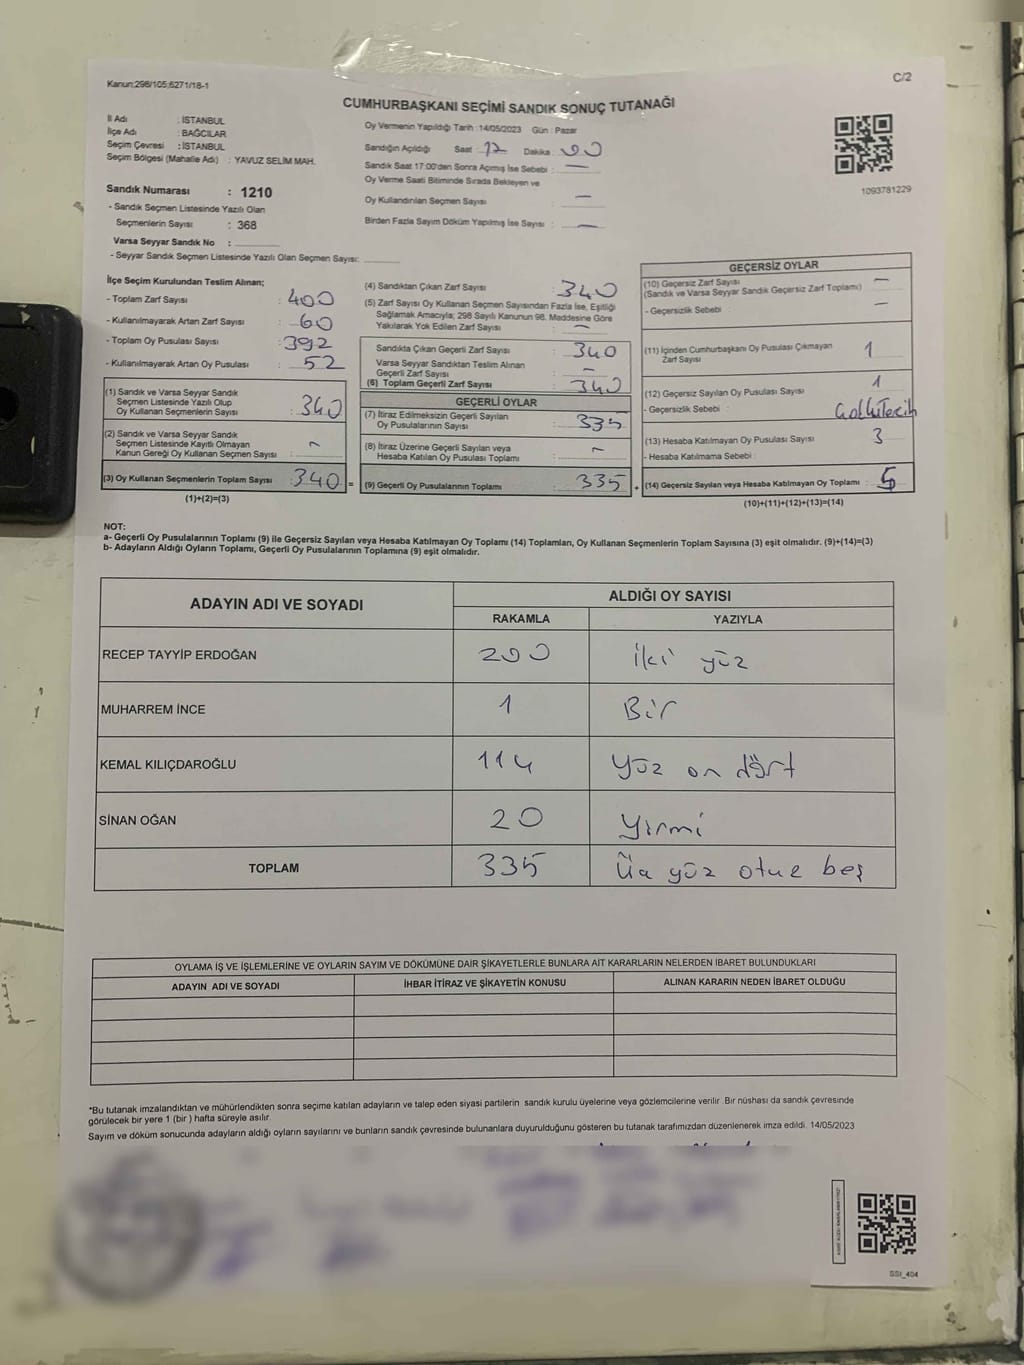 Kanun:298/105;6271/18-1
C/2
CUMHURBAŞKANI SEÇİMİ SANDIK SONUÇ TUTANAĞI
İl Adı : İSTANBUL
İlçe Adı : BAĞCILAR
Seçim Çevresi : İSTANBUL
Seçim Bölgesi (Mahalle Adı) : YAVUZ SELİM MAH.
Sandık Numarası : 1210
- Sandık Seçmen Listesinde Yazılı Olan
Seçmenlerin Sayısı : 368
Varsa Seyyar Sandık No :
- Seyyar Sandık Seçmen Listesinde Yazılı Olan Seçmen Sayısı:
Oy Vermenin Yapıldığı Tarih :14/05/2023 Gün : Pazar
Sandığın Açıldığı Saat : 17 Dakika : 00
Sandık Saat 17:00'den Sonra Açılmış İse Sebebi : —
Oy Verme Saati Bitiminde Sırada Bekleyen ve
Oy Kullandırılan Seçmen Sayısı : —
Birden Fazla Sayım Döküm Yapılmış İse Sayısı : —
1093781229
İlçe Seçim Kurulundan Teslim Alınan;
- Toplam Zarf Sayısı : 400
- Kullanılmayarak Artan Zarf Sayısı : 60
- Toplam Oy Pusulası Sayısı : 392
- Kullanılmayarak Artan Oy Pusulası : 52
(1) Sandık ve Varsa Seyyar Sandık
Seçmen Listesinde Yazılı Olup
Oy Kullanan Seçmenlerin Sayısı : 340
(2) Sandık ve Varsa Seyyar Sandık
Seçmen Listesinde Kayıtlı Olmayan
Kanun Gereği Oy Kullanan Seçmen Sayısı : -
(3) Oy Kullanan Seçmenlerin Toplam Sayısı : 340 =
(1)+(2)=(3)
(4) Sandıktan Çıkan Zarf Sayısı : 340
(5) Zarf Sayısı Oy Kullanan Seçmen Sayısından Fazla İse, Eşitliği
Sağlamak Amacıyla; 298 Sayılı Kanunun 98. Maddesine Göre
Yakılarak Yok Edilen Zarf Sayısı : -
Sandıkta Çıkan Geçerli Zarf Sayısı : 340
Varsa Seyyar Sandıktan Teslim Alınan
Geçerli Zarf Sayısı : -
(6) Toplam Geçerli Zarf Sayısı : 340
GEÇERLİ OYLAR
(7) İtiraz Edilmeksizin Geçerli Sayılan
Oy Pusulalarının Sayısı : 335
(8) İtiraz Üzerine Geçerli Sayılan veya
Hesaba Katılan Oy Pusulası Toplamı : -
(9) Geçerli Oy Pusulalarının Toplamı : 335 +
GEÇERSİZ OYLAR
(10) Geçersiz Zarf Sayısı : —
(Sandık ve Varsa Seyyar Sandık Geçersiz Zarf Toplamı)
- Geçersizlik Sebebi : —
(11) İçinden Cumhurbaşkanı Oy Pusulası Çıkmayan
Zarf Sayısı : 1
(12) Geçersiz Sayılan Oy Pusulası Sayısı : 1
- Geçersizlik Sebebi :
(13) Hesaba Katılmayan Oy Pusulası Sayısı : 3
- Hesaba Katılmama Sebebi :
(14) Geçersiz Sayılan veya Hesaba Katılmayan Oy Toplamı : 5
(10)+(11)+(12)+(13)=(14)
NOT:
a- Geçerli Oy Pusulalarının Toplamı (9) ile Geçersiz Sayılan veya Hesaba Katılmayan Oy Toplamı (14) Toplamları, Oy Kullanan Seçmenlerin Toplam Sayısına (3) eşit olmalıdır. (9)+(14)=(3)
b- Adayların Aldığı Oyların Toplamı, Geçerli Oy Pusulalarının Toplamına (9) eşit olmalıdır.
ADAYIN ADI VE SOYADI ALDIĞI OY SAYISI
RAKAMLA YAZIYLA
RECEP TAYYİP ERDOĞAN 200 İki yüz
MUHARREM İNCE 1 Bir
KEMAL KILIÇDAROĞLU 114 yüz on dört
SİNAN OĞAN 20 yirmi
TOPLAM 335 Üç yüz otuz beş
OYLAMA İŞ VE İŞLEMLERİNE VE OYLARIN SAYIM VE DÖKÜMÜNE DAİR ŞİKAYETLERLE BUNLARA AİT KARARLARIN NELERDEN İBARET BULUNDUKLARI
ADAYIN ADI VE SOYADI İHBAR İTİRAZ VE ŞİKAYETİN KONUSU ALINAN KARARIN NEDEN İBARET OLDUĞU
*Bu tutanak imzalandıktan ve mühürlendikten sonra seçime katılan adayların ve talep eden siyasi partilerin sandık kurulu üyelerine veya gözlemcilerine verilir. Bir nüshası da sandık çevresinde
görülecek bir yere 1 (bir ) hafta süreyle asılır.
Sayım ve döküm sonucunda adayların aldığı oyların sayılarını ve bunların sandık çevresinde bulunanlara duyurulduğunu gösteren bu tutanak tarafımızdan düzenlenerek imza edildi. 14/05/2023
SSI_404